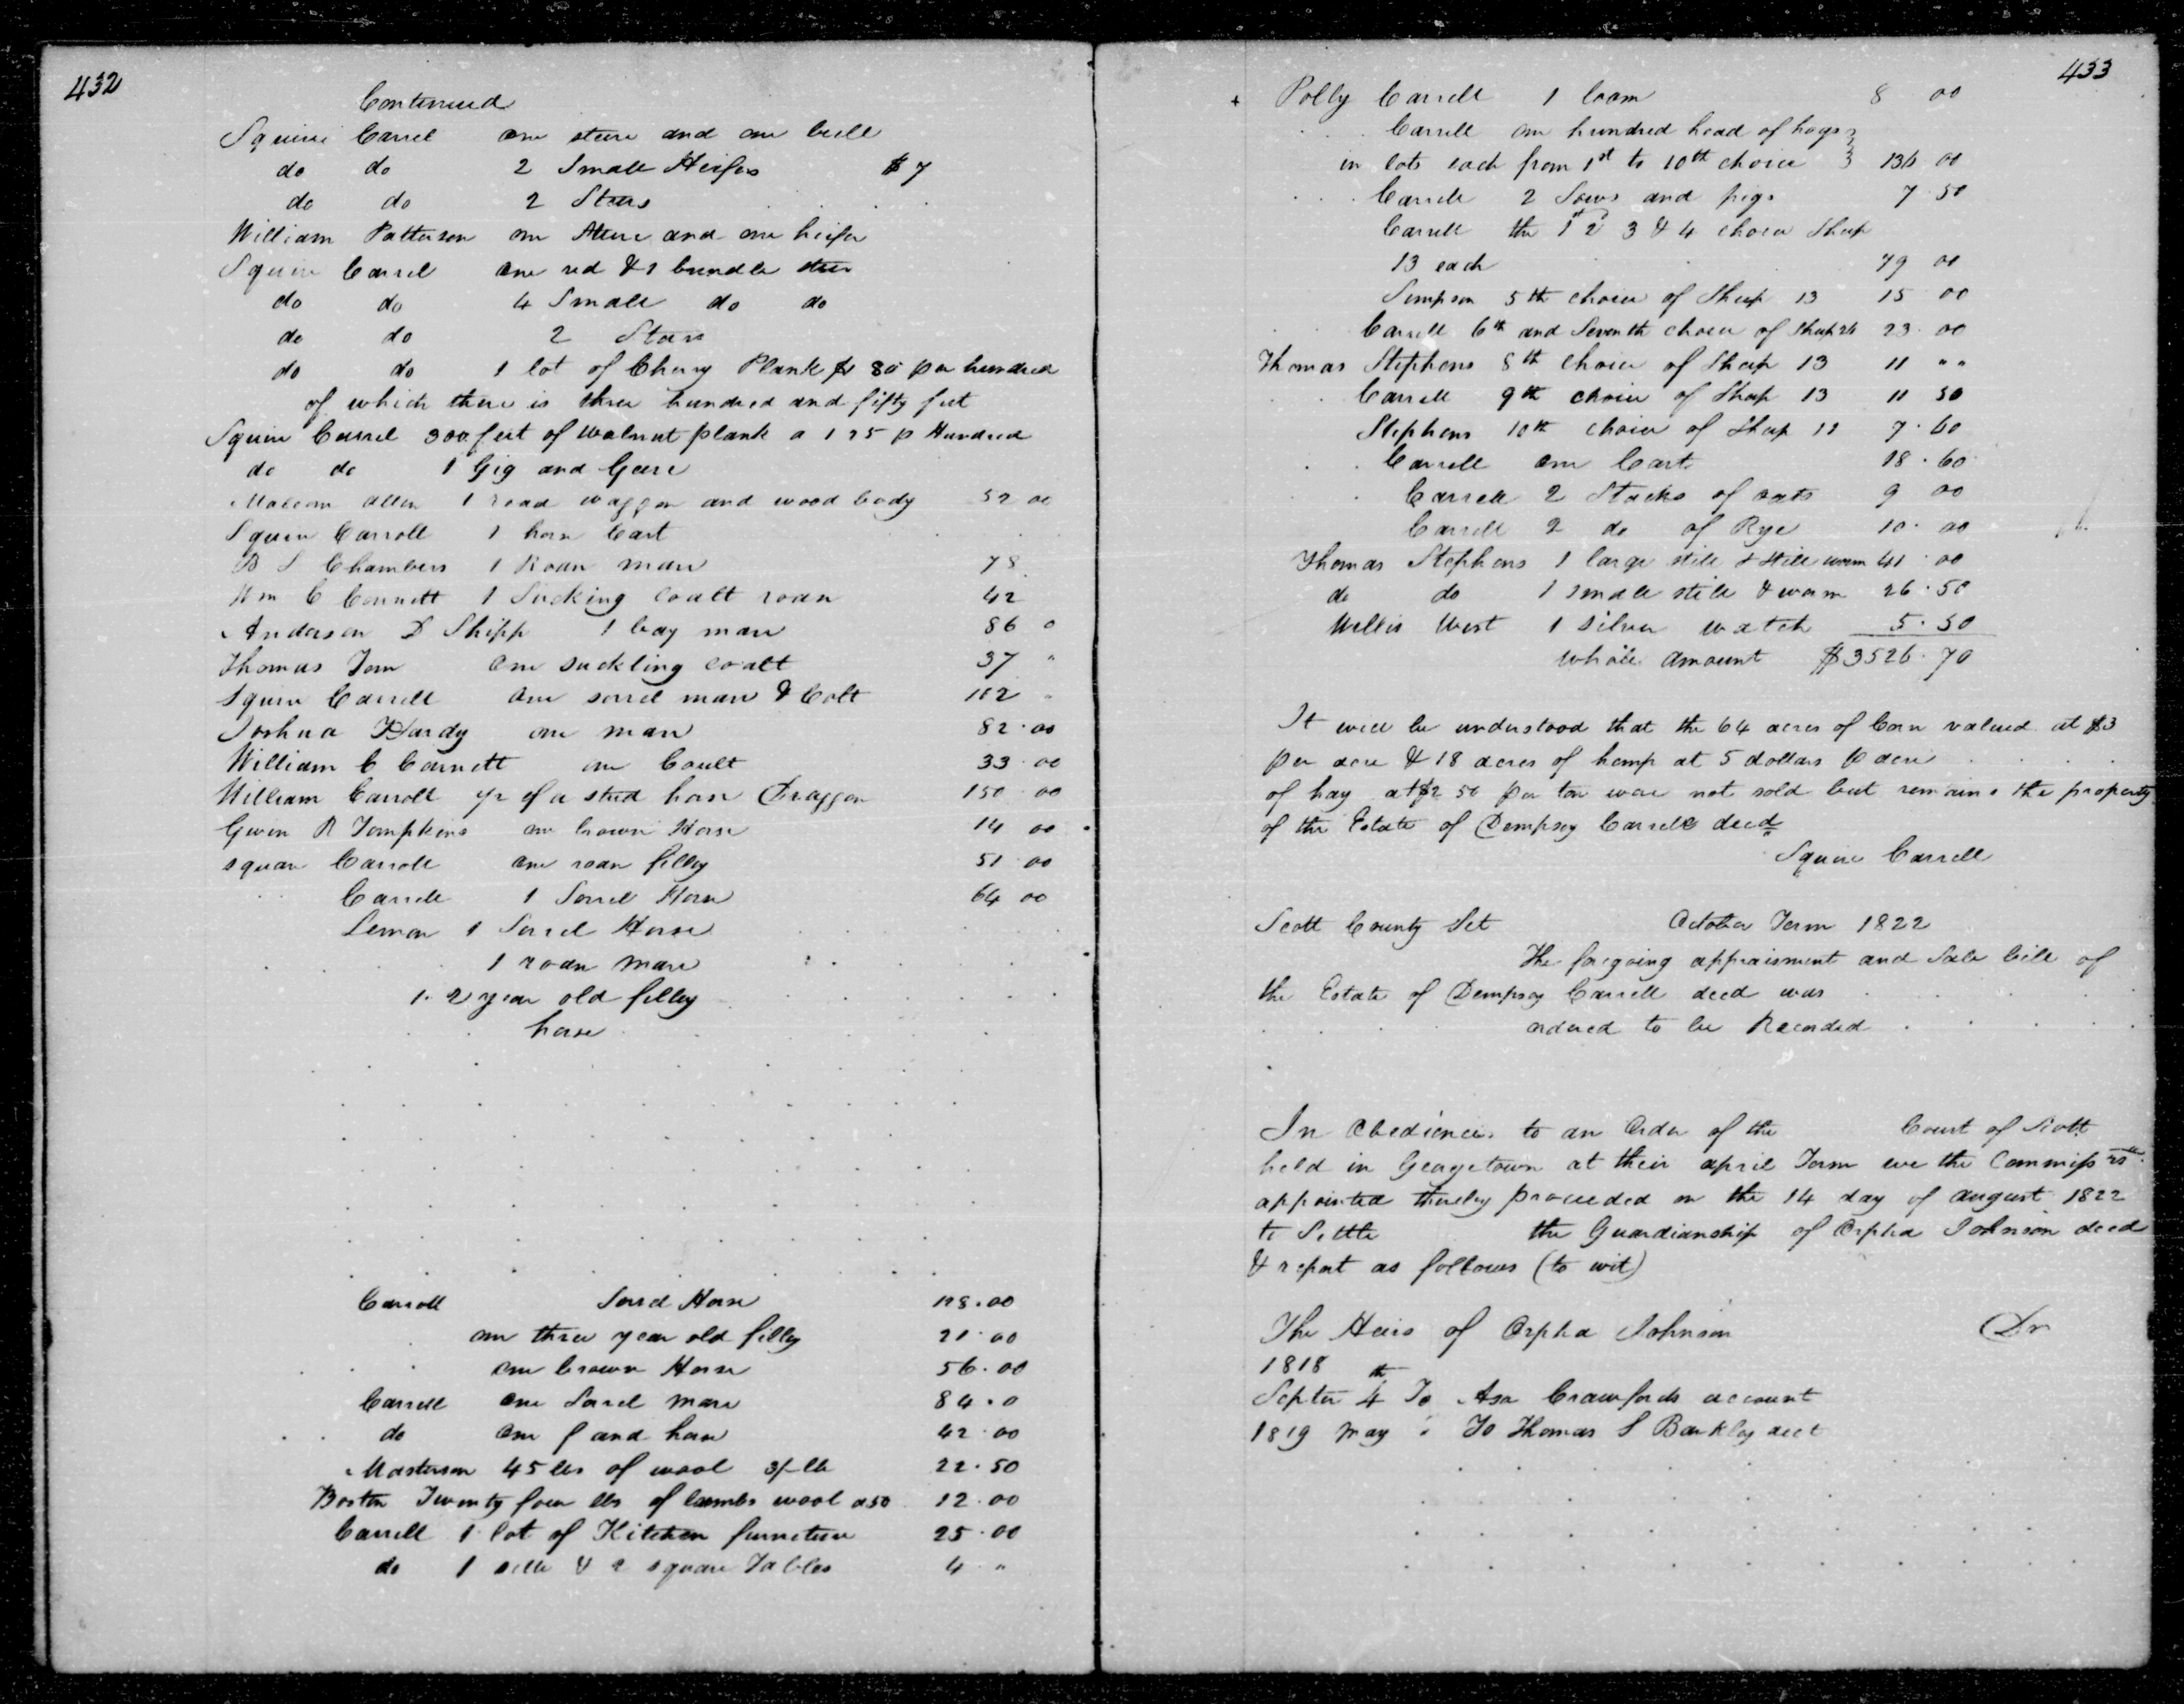 432
Continued
Squire Carrel one steere and one bull
do do 2 Small Heifers $ 7
do do 2 Stears
William Patterson one Steere and one heifer
Squire Carrel one red & 1 brindle steer
do do 4 Small do do
do do 2 Stears
do do 1 lot of Cherry Plank $1 80 per hundred
of which there is three hundred and fifty feet
Squire Carrel 300 feet of Walnut plank a 1 25 p Hundred
do do 1 Gig and Geare
Malcom Allen 1 road waggon and wood body 52 00
Squire Carroll 1 horse Cart
B S Chambers 1 Roan mare 78
Wm C Connett 1 Sucking coalt roan 42
Anderson D Shipp 1 bay mare 86 0
Thomas Tom one suckling coalt 37 "
Squire Carrell one sorrel mare & Colt 102 "
Joshua Hardy one mare 82.00
William C Cornett one Coult 33.00
William Carroll of a stud horse Draggon 150 00
Gwin R Tompkins one brown Horse 14 00
squar Carroll one roan filley 51.00
Carrell 1 Sorrel Horse 64 00
Lemon 1 Sorrel Horse
1 roan mare
1. 2 year old filley
horse
Carroll Sorrel Horse 118.00
one three year old filley 21.00
one brown Horse 56.00
Carrell one Sorrel mare 84.0
do one horse 42.00
Masterson 45 lbs of wool 3/- lb 22.50
Boston Twenty four lbs of lambs wool a 50 12.00
Carrell 1 lot of Kitchen furniture 25.00
do 1 & 2 square Tables 4 "
433
+ Polly Carrell 1 loom 8 00
Carrell one hundred head of hogs
in lots each from 1st to 10th choice 136 00
Carrell 2 Sows and pigs 7.50
Carrell the 1st 2d 3 & 4 choice Sheep
13 each 79 00
Simpson 5th choice of Sheep 13 15 00
Carrell 6th and Seventh choice of Sheep 26 23.00
Thomas Stephens 8th choice of Sheep 13 11 " "
Carrell 9th choice of Sheep 13 11 50
Stephens 10th choice of Sheep 12 7.60
Carrell one Cart 18.60
Carrell 2 Stacks of oats 9 00
Carrell 2 do of Rye 10.00
Thomas Stephens 1 large still & still worm 41.00
do do 1 small still & worm 26.50
Willis West 1 silver watch 5.50
whole amount $3526.70
It will be understood that the 64 acres of Corn valued at $3
per acre & 18 acres of hemp at 5 dollars p acre
of hay at $2 50 per ton were not sold but remains the property
of the Estate of Dempsey Carrell decd
Squire Carrell
Scott County Sct October Term 1822
The foregoing appraisment and Sale bill of
the Estate of Dempsey Carrell decd was
ordered to be Recorded
In Obedience to an Order of the Court of Scott
held in Georgetown at their april Term we the Commissrs
appointed thereby proceeded on the 14 day of august 1822
to Settle the Guardianship of Orpha Johnson decd
& report as follows (to wit)
The Heirs of Orpha Johnson Dr
1818
Septer 4th To Asa Crawfords account
1819 May " To Thomas S Barkley acct